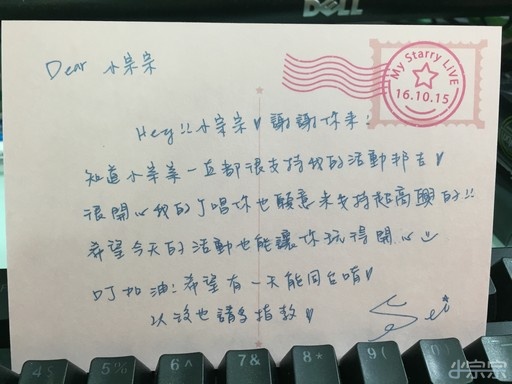 DELL
My Starry LIVE
16.10.15
Dear 小宗宗
Hey!! 小宗宗♥ 謝謝你來!
知道小宗宗一直都很支持我的活動邦吉♥
很開心我的丁唱你也願意來支持超高興的!!
希望今天的活動也能讓你玩得開心
叮加油!希望有一天能同台唷♥
以後也請多指教♥
Sei*
4$
5%
6^
7&
8*
9(
小宗宗